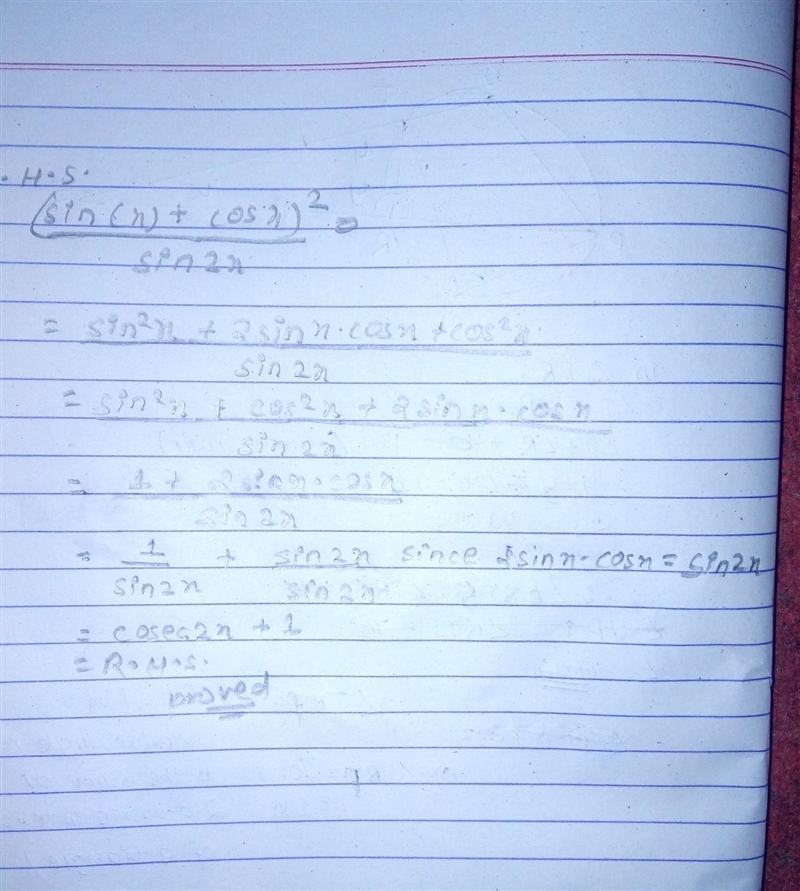 . H. S.
(sin(x) + cosx)² =
sin2x
= sin²x + 2sinx·cosx + cos²x
sin2x
= sin²x + cos²x + 2sinx·cosx
sin2x
= 1 + 2sinx·cosx
sin2x
= 1 + sin2x since 2sinx·cosx = sin2x
sin2x sin2x
= cosec2x + 1
= R.H.S.
proved